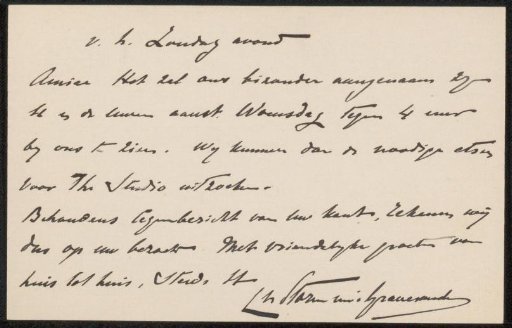 v. h. Zondag avond
Amice Het zal ons bizonder aangenaam zijn
U en de uwen aanst. Woensdag tegen 4 uur
by ons te zien. Wy kunnen dan de noodige etsen
voor The Studio uitzoeken.
Behoudens tegenbericht van uw kant, rekenen wij
dus op uw bezoek. Met vriendelyke groeten van
huis tot huis, steeds Uw
Ch Storm van 's Gravesande